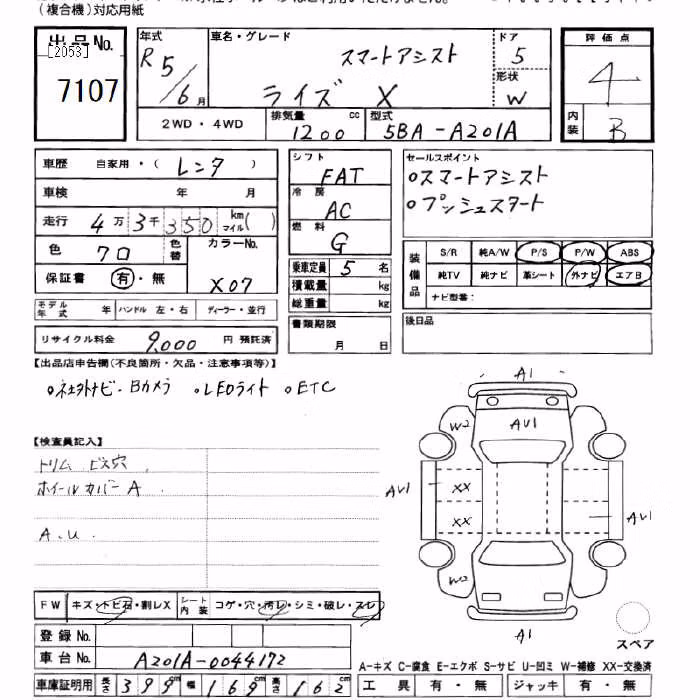 (複合機)対応用紙
出品No.
[2053]
7107
年式
R5/6月
車名・グレード
スマートアシスト
ライズ X
ドア
5
形状
W
2WD・4WD
排気量 cc
1200
型式
5BA-A201A
評価点
4
内装
B
車歴 自家用・(レンタ)
車検 年 月
走行 4万3千350 km マイル( )
色 クロ 色替
カラーNo.
X07
保証書 有・無
モデル年式 年 ハンドル 左・右 ディーラー・並行
リサイクル料金 9,000 円 預託済
シフト
FAT
冷房
AC
燃料
G
乗車定員 5 名
積載量 kg
総重量 kg
書類期限
月 日
セールスポイント
○スマートアシスト
○プッシュスタート
装備品
S/R 純A/W P/S P/W ABS
純TV 純ナビ 革シート 外ナビ エアB
ナビ型番:
後日品
【出品店申告欄(不良箇所・欠品・注意事項等)】
○社外ナビ・Bカメラ ○LEDライト ○ETC
【検査員記入】
トリム ビス穴
ホイールカバー A
A.U
A1
W2
AU1
AU1
XX
XX
AU1
W2
A1
スペア
FW キズ・トビ石・割レX シート内装 コゲ・穴・汚レ・シミ・破レ・スレ
登録No.
車台No. A201A-0044172
車庫証明用 長さ 399cm 幅 169cm 高さ 162cm
A-キズ C-腐食 E-エクボ S-サビ U-凹ミ W-補修 XX-交換済
工具 有・無 ジャッキ 有・無